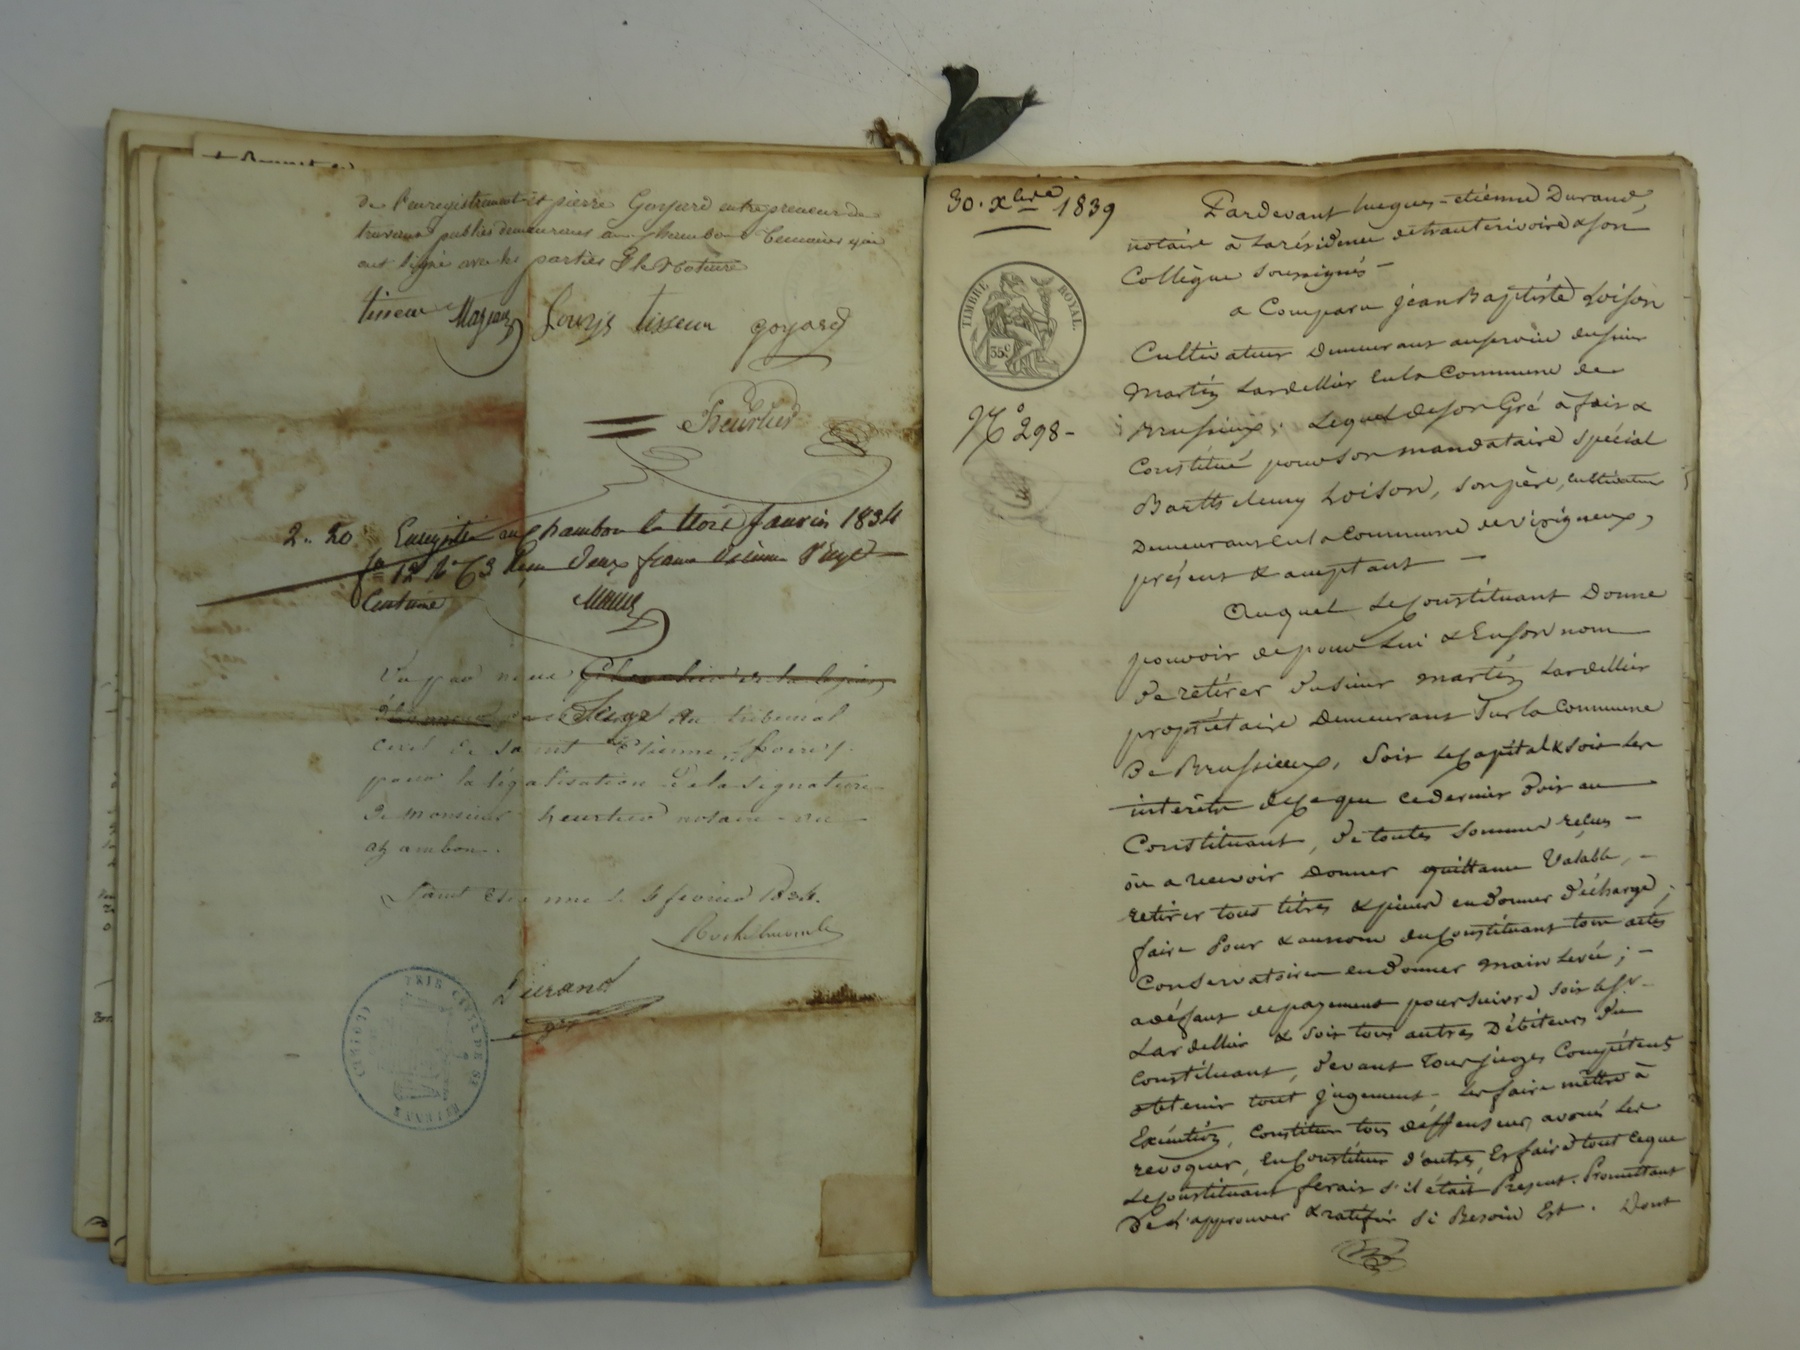 de l'enregistrement et pierre Goyard entrepreneur de
travaux publics demeurans au chambon temoins qui
ont signé avec les parties & le Notaire
tisseur Louzis tisseur goyard
heurtier
2.. 20 Enregistré au chambon le trois fevrier 1834
fo 12 Ro C 3 Reçu deux francs décime vingt
centimes
Vu par nous Chevalier de la légion
d'honneur juge du tribunal
civil de saint Etienne (Loire)
pour la légalisation de la signature
de monsieur heurtier notaire au
chambon.
Saint etienne le 4 fevrier 1834.
Durand
30. xbre 1839
TIMBRE ROYAL.
35c
No 298-
Pardevant hugues-etienne Durand,
notaire à la résidence de & son
Collègue soussignés -
a Comparu jean Baptiste Loison
Cultivateur demeurant au service du sieur
Martin Lardellier en la Commune de
Brussieux; Lequel de son Gré à fait &
Constitué pour son mandataire spécial
Barthelemy Loison, son père, cultivateur
demeurant en la Commune de virigneux,
présent & acceptant -
Auquel le Constituant Donne
pouvoir de pour Lui & En son nom
de retirer du sieur martin Lardellier
propriétaire demeurant sur la Commune
de Brussieux, soit le Capital & soit les
intérêts de ce que ce dernier doit au
Constituant, de toutes sommes reçues -
ou a recevoir donner quittance Valable, -
retirer tous titres & pièces en donner décharge;
faire pour & au nom du Constituant tous actes
Conservatoires en donner main levée; -
a défaut de payement poursuivre soit le sr.
Lardellier & soit tous autres Débiteurs du
Constituant, devant tous juges Compétens
obtenir tout jugement, les faire mettre à
Exécution, Constituer tous deffenseurs, avoués les
revoquer, en Constituer d'autres, Et faire tout ce que
le Constituant ferait s'il était Present. Promettant
de L'approuver & ratifier si Besoin Est. Dont